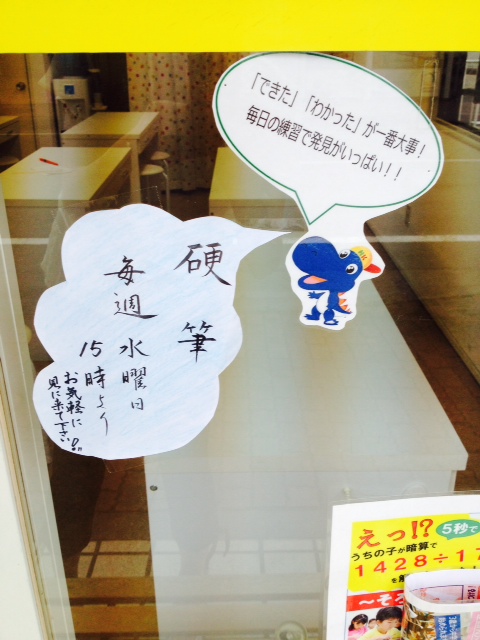 「できた」「わかった」が一番大事!
毎日の練習で発見がいっぱい!!
硬筆
毎週水曜日
15時より
お気軽に
見に来て下さい
えっ!?
5秒で
うちの子が暗算で
1428÷17
を
〜そろ